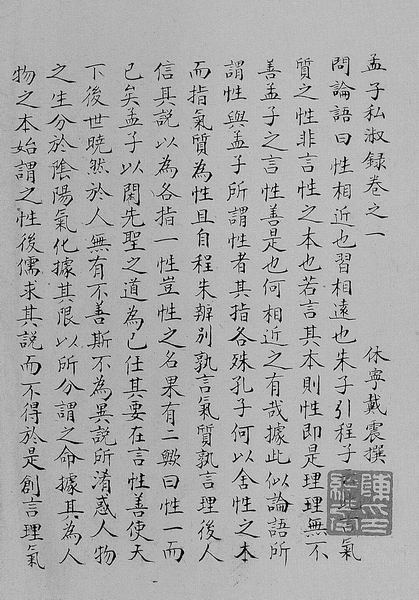 孟子私淑録卷之一
休寧戴震撰
問論語曰性相近也習相遠也朱子引程子云此言氣
質之性非言性之本也若言其本則性即是理理無不
善孟子之言性善是也何相近之有哉據此似論語所
謂性與孟子所謂性者其指各殊孔子何以舍性之本
而指氣質為性且自程朱辨別孰言氣質孰言理後人
信其說以為各指一性豈性之名果有二歟曰性一而
已矣孟子以閑先聖之道為己任其要在言性善使天
下後世曉然於人無有不善斯不為異說所淆惑人物
之生分於陰陽氣化據其限以所分謂之命據其為人
物之本始謂之性後儒求其說而不得於是創言理氣